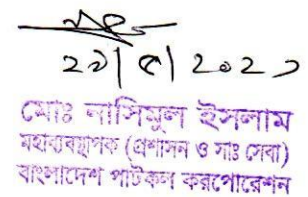 ২৯|৫|২০২১
মোঃ নাসিমুল ইসলাম
মহাব্যবস্থাপক (প্রশাসন ও সাঃ সেবা)
বাংলাদেশ পাটকল করপোরেশন